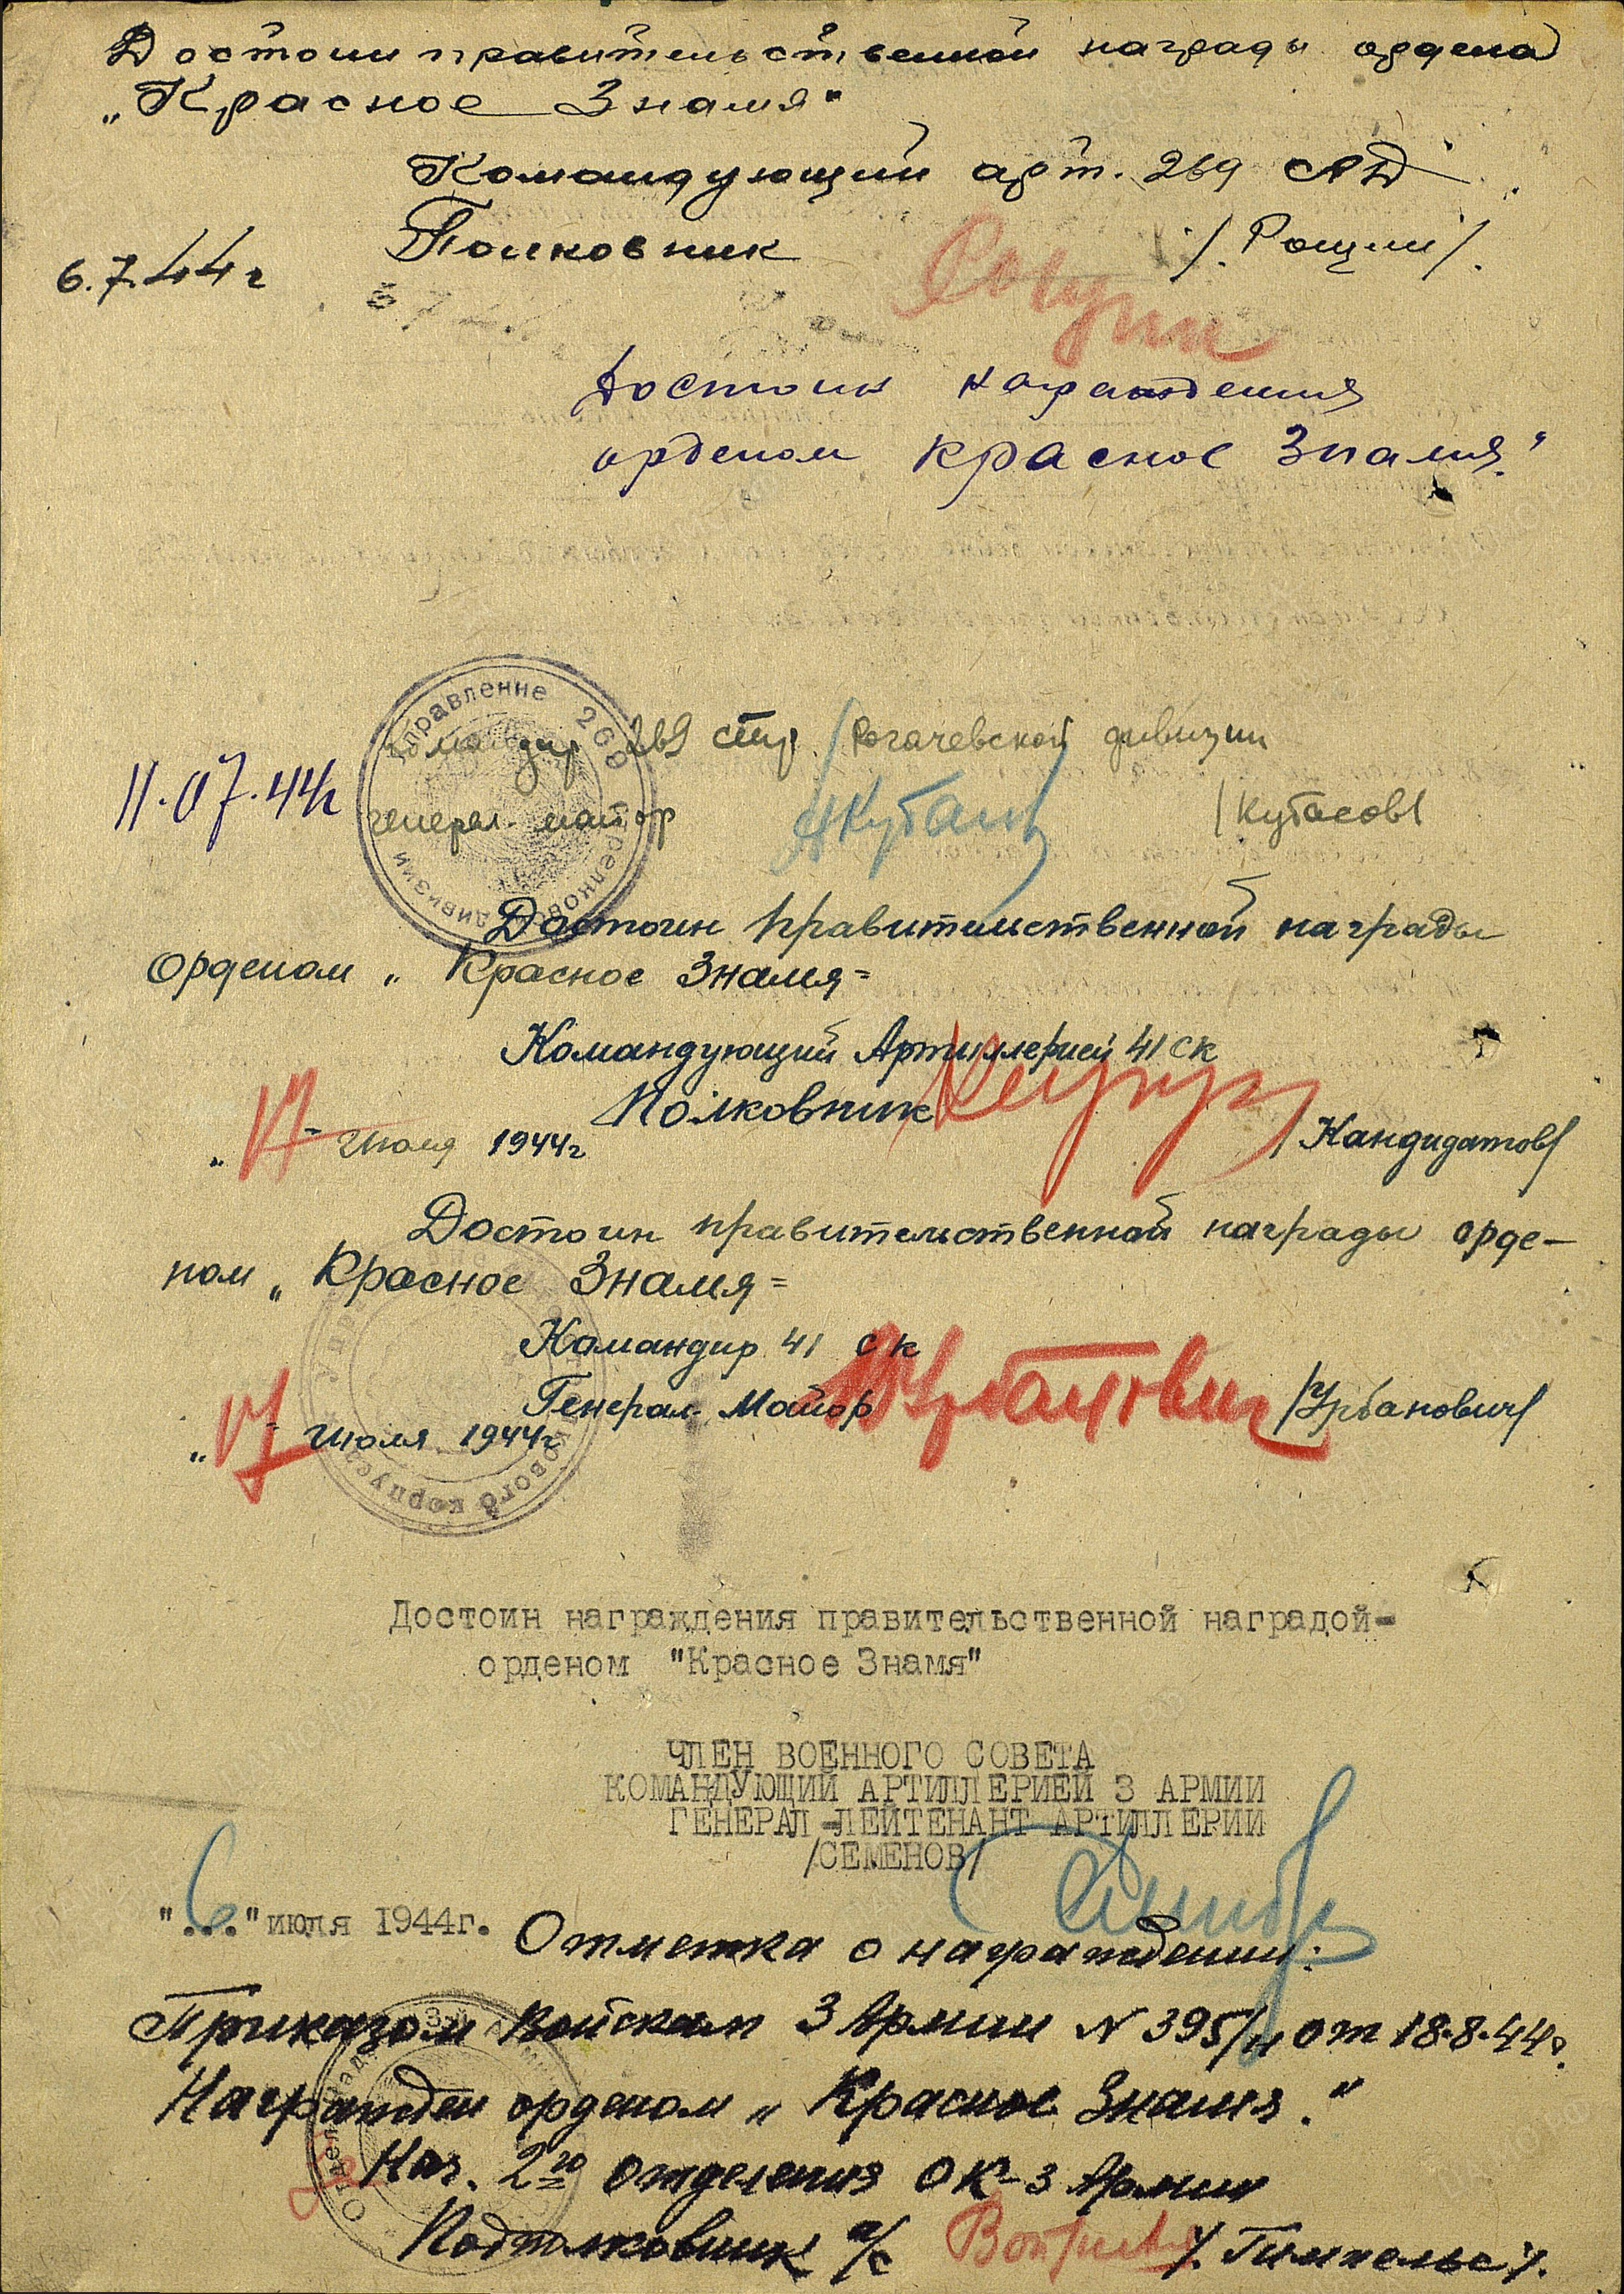 Достоин правительственной награды ордена
„Красное Знамя"
Командующий арт. 269 СД
Полковник /. Рощин /.
Рощин
6.7.44г
Достоин награждения
орденом Красное Знамя."
Управление 269 стрелковой дивизии
Командир 269 стр. Рогачевской дивизии
11.07.44г
генерал-майор /Кутасов/
Достоин правительственной награды
Орденом „Красное Знамя"
Командующий Артиллерией 41 ск
Полковник /Кандидатов/
„17" Июля 1944г
Достоин правительственной награды орде-
ном „Красное Знамя"
Командир 41 ск
Генерал-Майор Урбанович /Урбанович/
„17" Июля 1944г
стрелкового корпуса
Достоин награждения правительственной наградой-
орденом "Красное Знамя"
ЧЛЕН ВОЕННОГО СОВЕТА
КОМАНДУЮЩИЙ АРТИЛЛЕРИЕЙ 3 АРМИИ
ГЕНЕРАЛ-ЛЕЙТЕНАНТ АРТИЛЛЕРИИ
/СЕМЕНОВ/
"6" июля 1944г.
Отметка о награждении:
Приказом Войскам 3 Армии N 395/н от 18.8.44г.
Награжден орденом „Красное Знамя."
Нач. 2го отделения ОК-3 Армии
Подполковник а/с